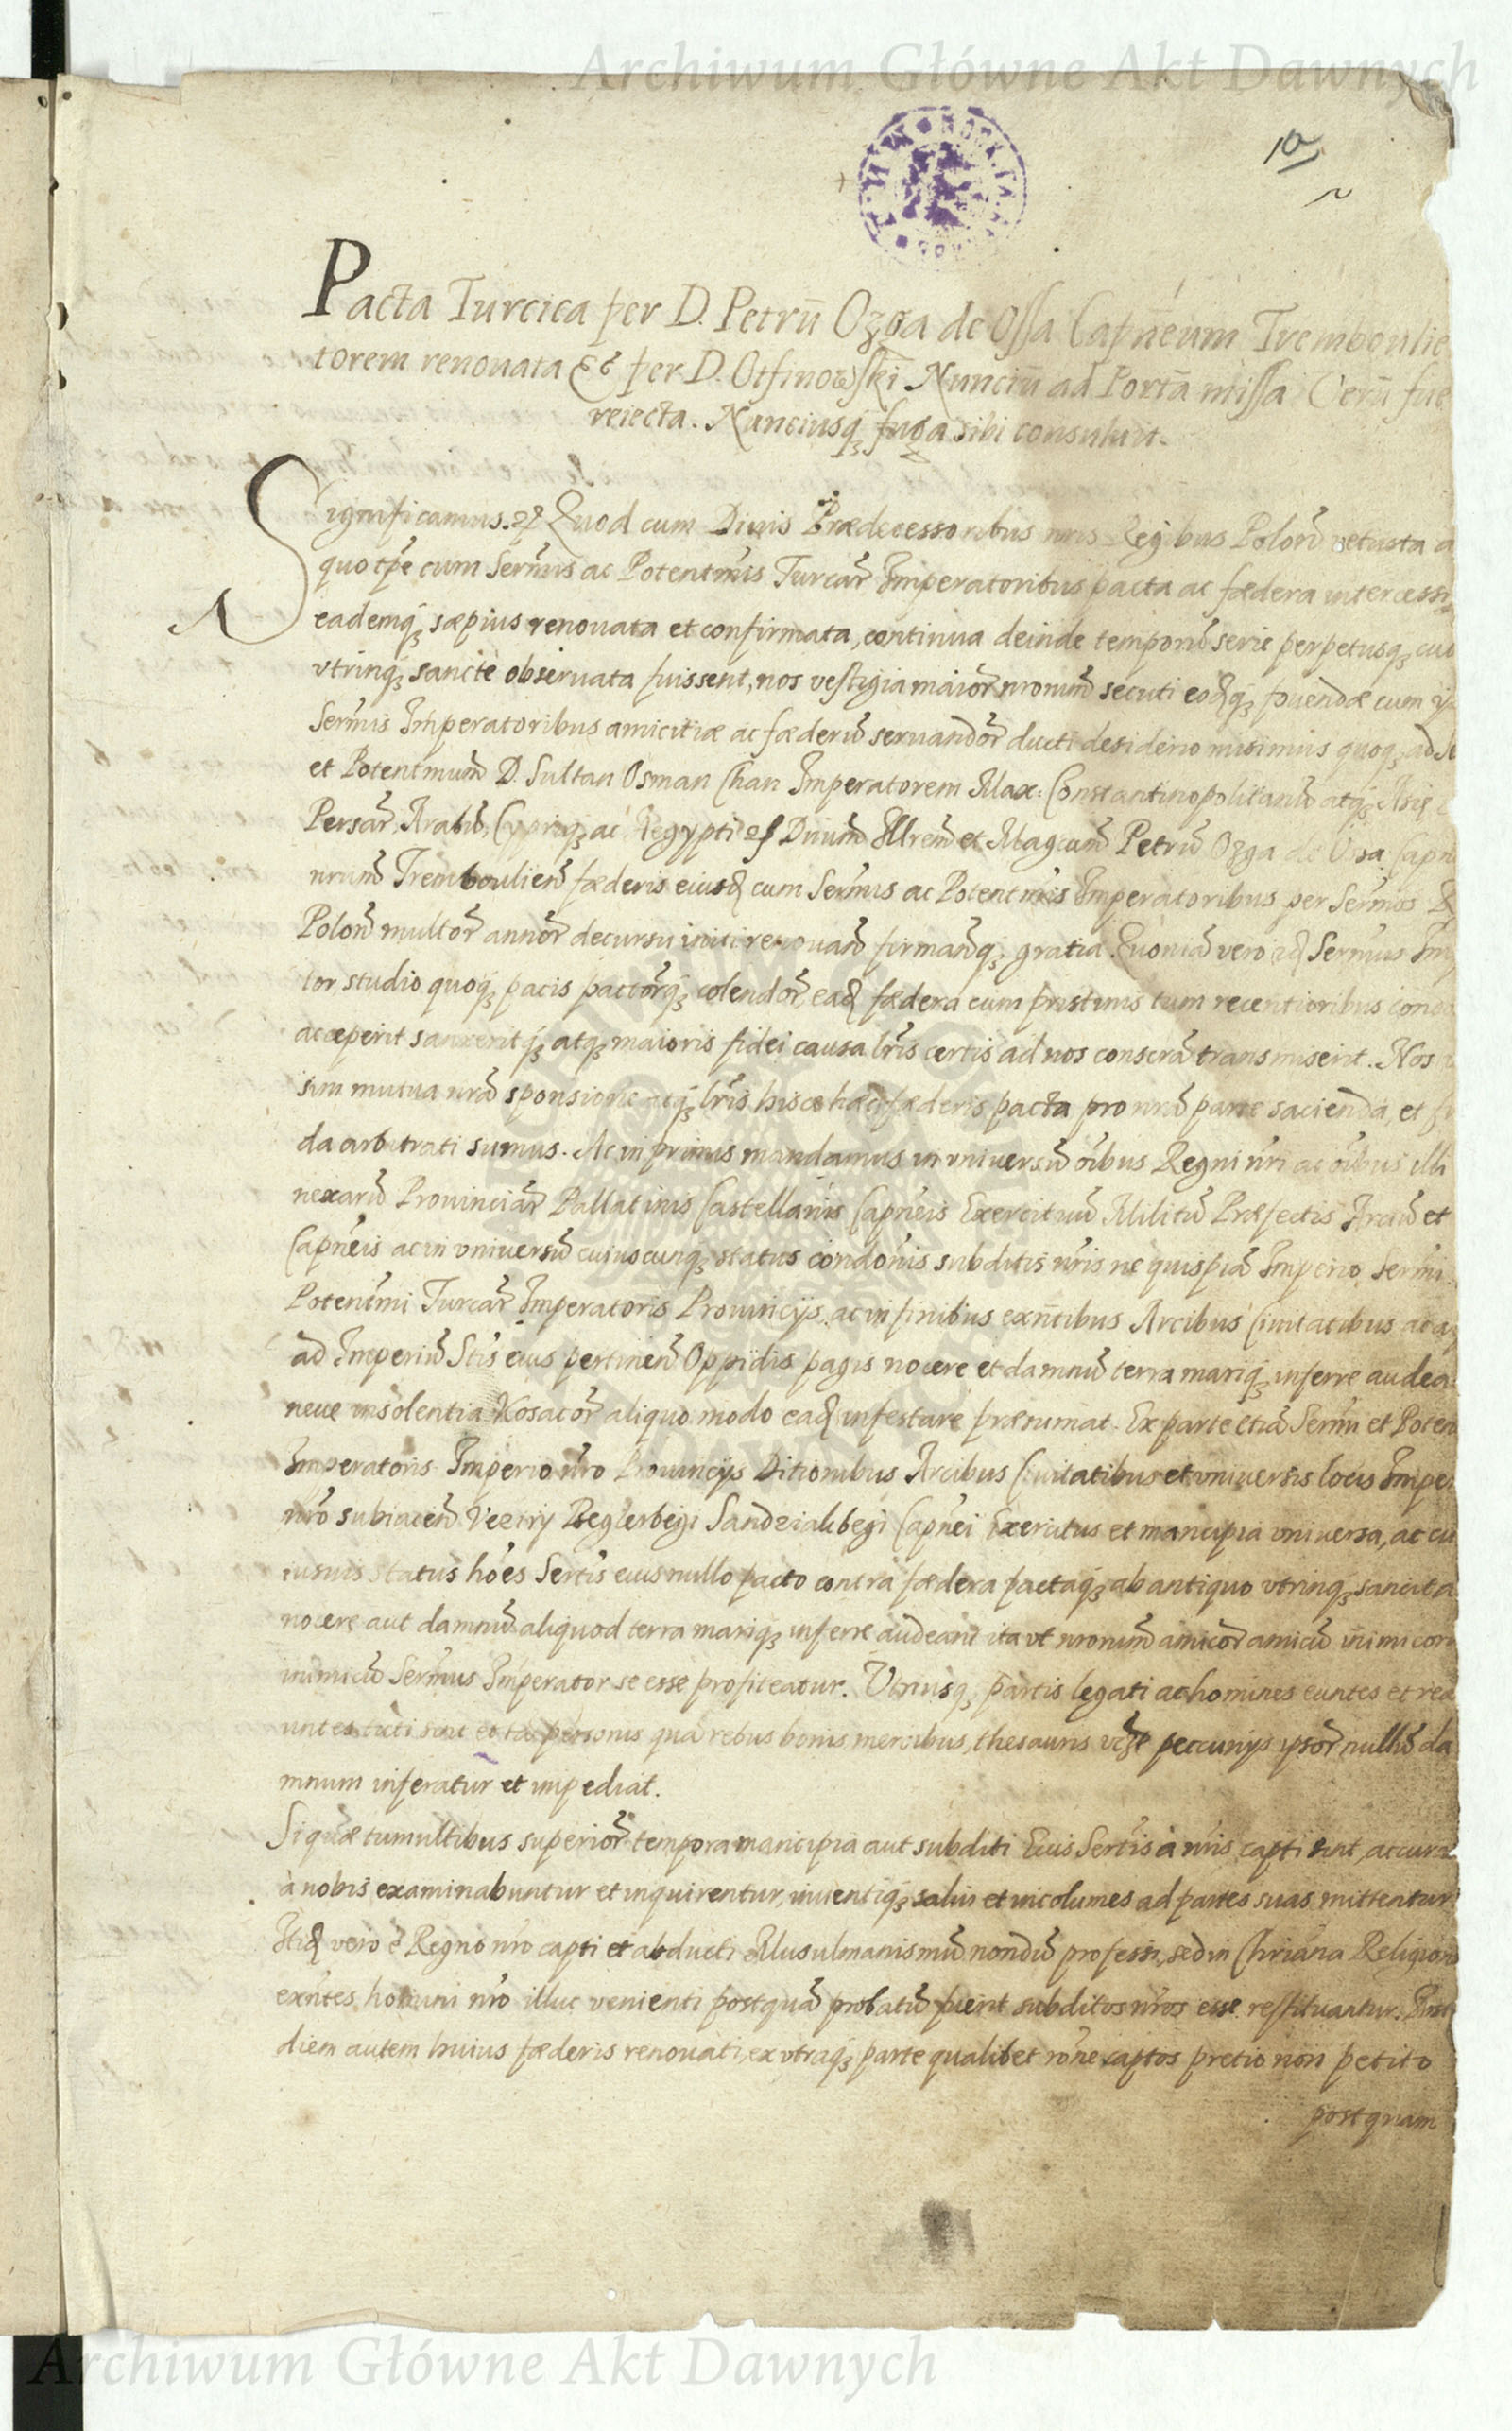 Archiwum Główne Akt Dawnych
10
Pacta Turcica per D. Petrū Ozga de Ossa Capneum Trembowlie
torem renouata Et per D. Otfinowski Nunciū ad Portā missa Verū fue
reiecta. Nunciusq; fuga sibi consuluit.
Significamus. Quod cum Diuis Prædecessoribus nris Regibus Polon̄ vetusta a
quo tpe cum Sermis ac Potentmis Turcar̄ Imperatoribus pacta ac fædera intercessi
eademq; sæpius renouata et confirmata, continua deinde temporū serie perpetusq; cu
vtrinq; sanctè obseruata fuissent, nos vestigia maior̄ nronum̄ secuti eodq; fouendæ cum
Sermis Imperatoribus amicitiæ ac fæderū seruandor̄ ducti desiderio misimus quoq; ad
et Potentmum̄ D. Sultan Osman Chan Imperatorem Max: Constantinopolitanū atq; Asię
Persar̄, Arabū, Cypriq; ac Aegypti Diuum̄ Illrem̄ et Magcum̄ Petrū Ozga de Ossa Capn
nrum̄ Trembowlien̄ fæderis eiusd cum Sermis ac Potentmis Imperatoribus per Sermos
Polon̄ multor̄ annor̄ decursu initi renouan̄ firmanq; gratia. Quoniā vero Sermus Im
tor studio quoq; pacis pactorq; colendor̄, ead fædera cum pristinis tum recentioribus
acceperit sanxeritq; atq; maioris fidei causa lris certis ad nos conscrā transmiserit. Nos
sim mutua nrā sponsione atq; lris hisce hæc fæderis pacta pro nrā parte sacienda, et
da arbitrati sumus. Ac in primis mandamus in vniuersū oībus Regni nri ac oībus illi
nexarū Prouinciar̄ Pallatinis Castellanis Capneis Exercituū Militū Præfectis Arciū et
Capneis ac in vniuersū cuiuscunq; status condonis subditis nris ne quispiā Imperio, Sermi
Potentmi Turcar̄ Imperatoris Prouincijs, ac in finibus exntibus Arcibus Ciuitatibus
ad Imperiū Stis eius pertinen̄ Oppidis pagis nocere et damnū terra mariq; inferre audea
neue insolentia Kosacor̄ aliquo modo ead infestare præsumat. Ex parte etiā Sermi et Poten
Imperatoris Imperio nro Prouincijs Ditionibus Arcibus Ciuitatibus et vniuersis locis Impe
nro subiacen̄ Veziry Beglerbegi Sandziakbegi Capnei Exercitus et mancipia vniuersa, ac cu
iusuis status hoēs Sertis eius nullo pacto contra fædera pactaq; ab antiquo vtrinq; sancita
nocere aut damnū aliquod terra mariq; inferre audeant ita vt nronum̄ amicor̄ amicū inimicor
inimicū Sermus Imperator se esse profiteatur. Vtriusq; partis legati ac homines euntes et rea
untes tuti sint et tā personis quā rebus bonis mercibus, thesauris peccunijs ipsor̄ nullū da
mnum inferatur et impediat.
Si quæ tumultibus superior̄ tempora mancipia aut subditi Eius Sertis à nris capti sint, accura
à nobis examinabuntur et inquirentur, inuentiq; salui et incolumes ad partes suas mittentur
Itid vero è Regno nro capti et abducti Musulmanismū nondū professi, sed in Chriana Religion
exntes homini nro illuc venienti postquā probatū fuerit subditos nros esse restituantur. Post
diem autem huius fæderis renouati, ex vtraq; parte qualibet rone captos pretio non petito
postquam
Archiwum Główne Akt Dawnych